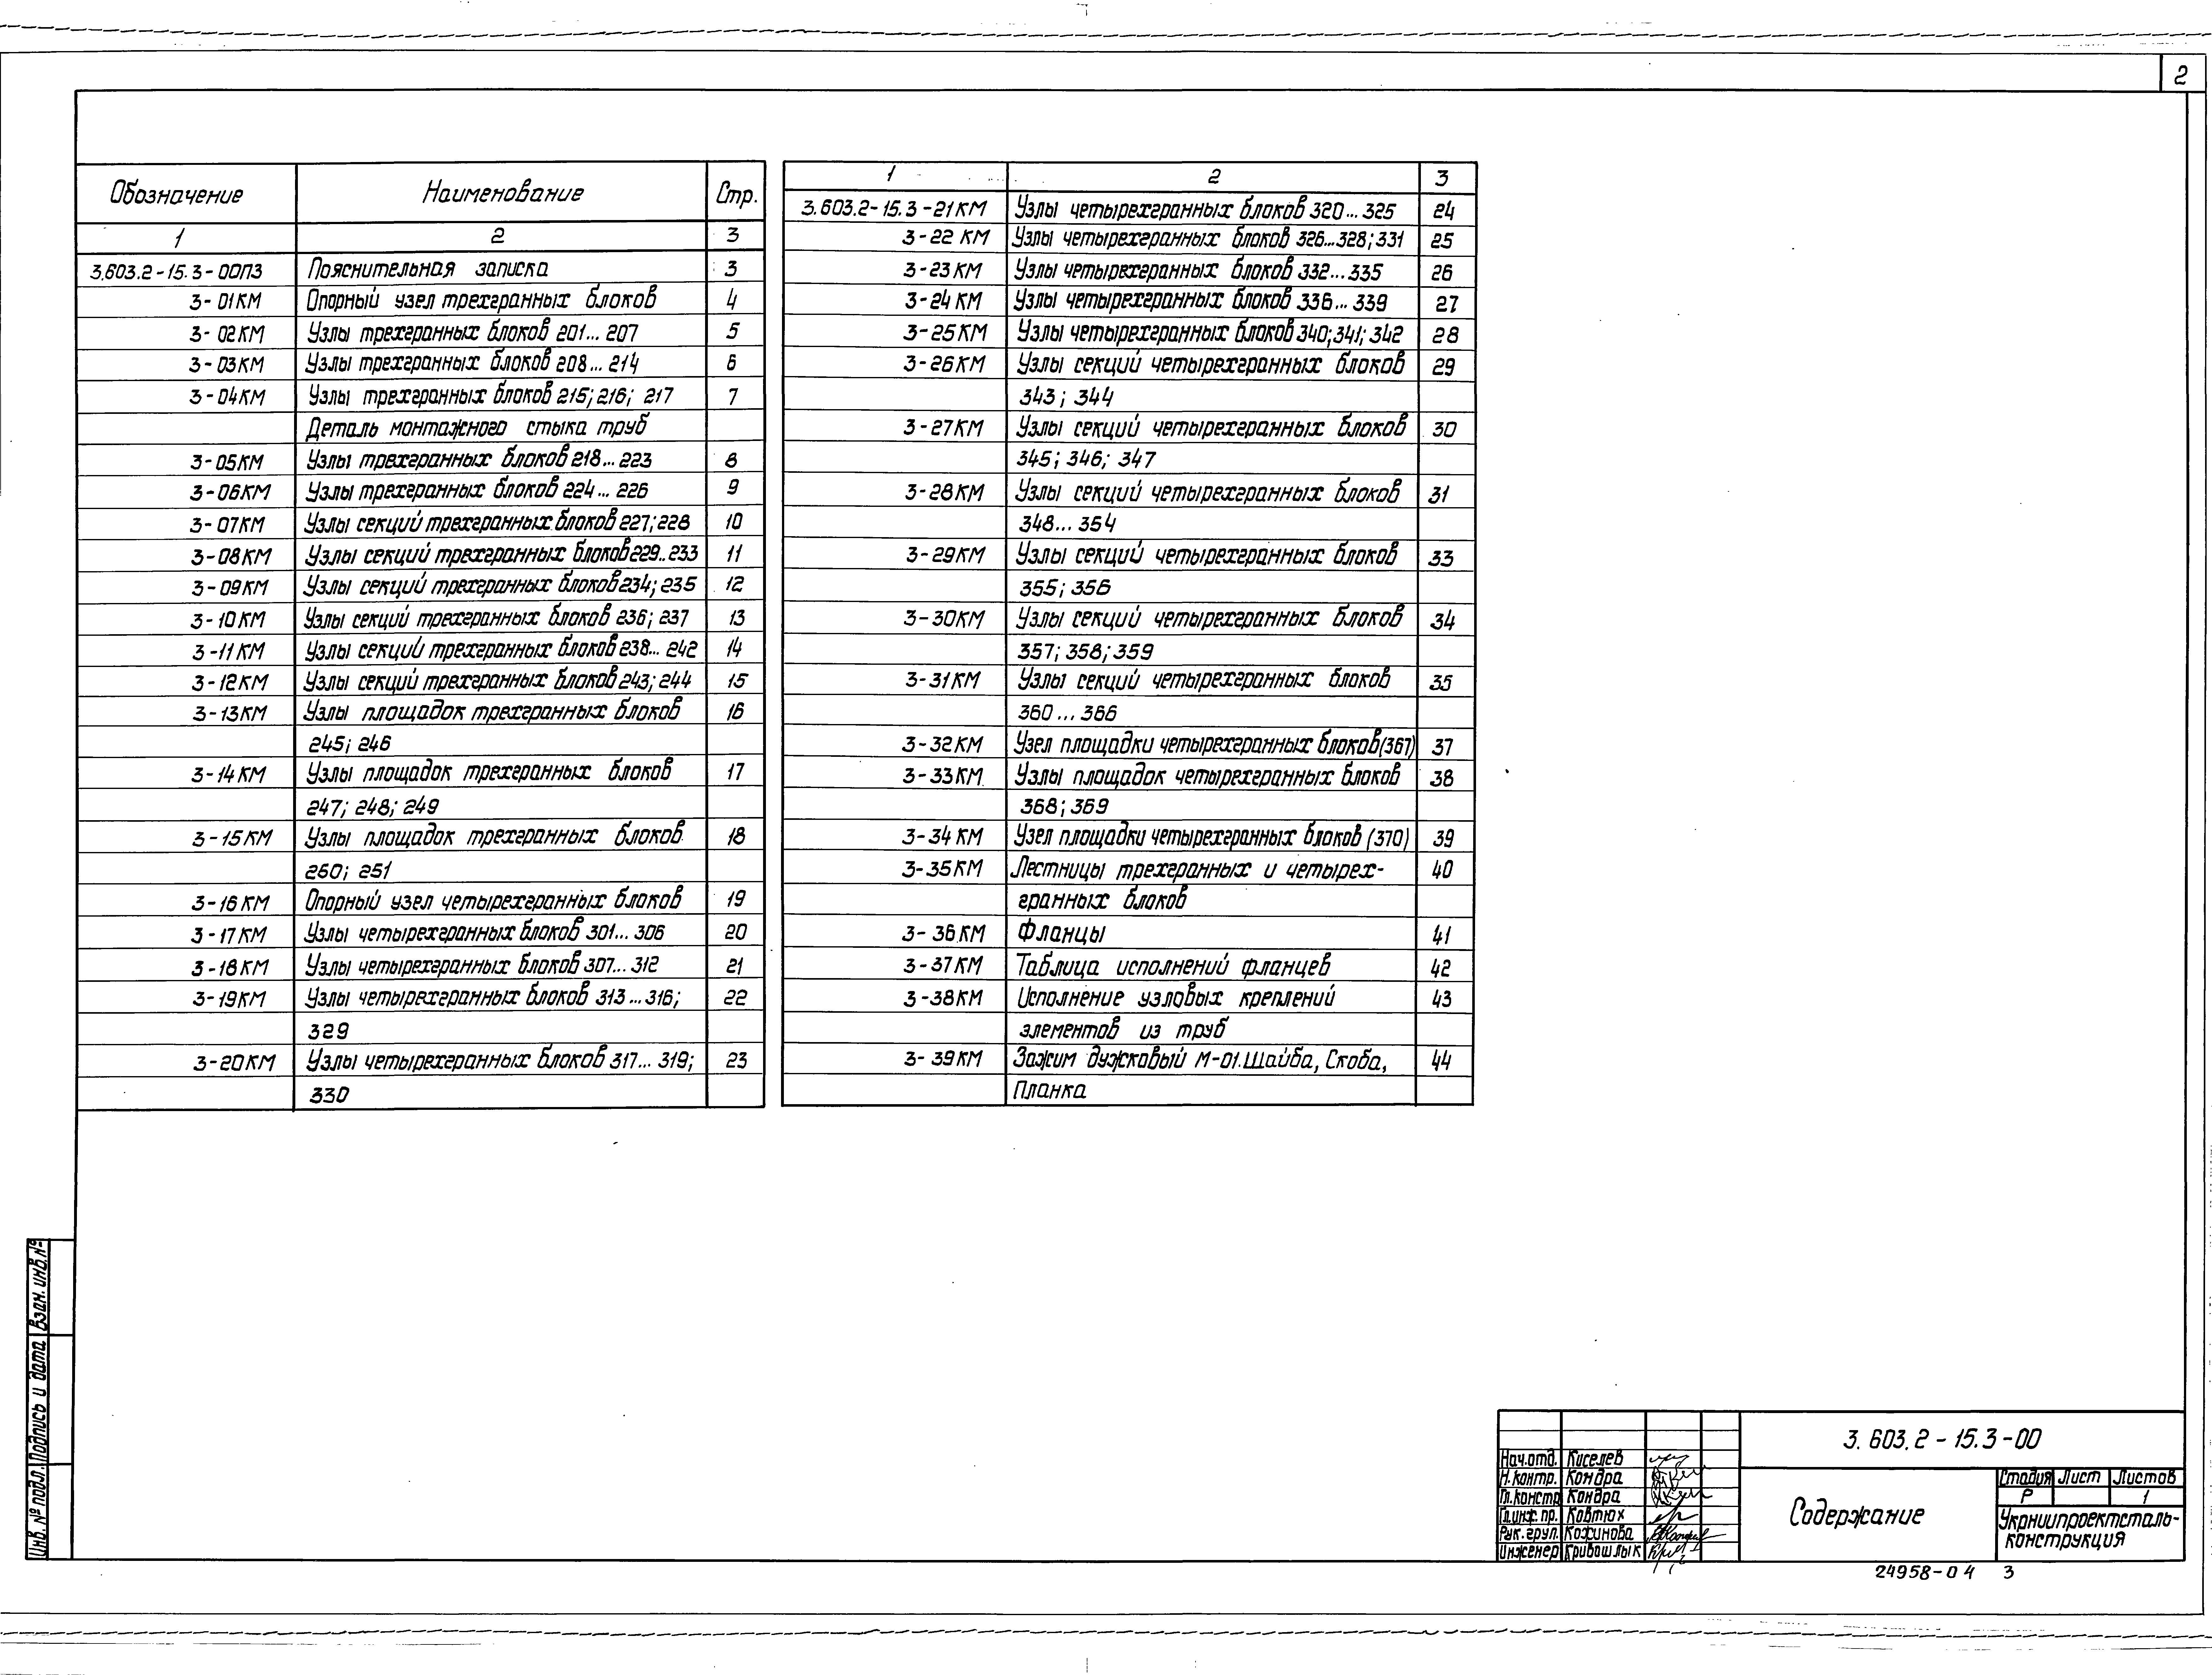 2
Обозначение Наименование Стр.
1 2 3
3.603.2-15.3-00ПЗ Пояснительная записка 3
3-01КМ Опорный узел трехгранных блоков 4
3-02КМ Узлы трехгранных блоков 201...207 5
3-03КМ Узлы трехгранных блоков 208...214 6
3-04КМ Узлы трехгранных блоков 215; 216; 217 7
Деталь монтажного стыка труб
3-05КМ Узлы трехгранных блоков 218...223 8
3-06КМ Узлы трехгранных блоков 224...226 9
3-07КМ Узлы секций трехгранных блоков 227; 228 10
3-08КМ Узлы секций трехгранных блоков 229..233 11
3-09КМ Узлы секций трехгранных блоков 234; 235 12
3-10КМ Узлы секций трехгранных блоков 236; 237 13
3-11КМ Узлы секций трехгранных блоков 238...242 14
3-12КМ Узлы секций трехгранных блоков 243; 244 15
3-13КМ Узлы площадок трехгранных блоков 16
245; 246
3-14КМ Узлы площадок трехгранных блоков 17
247; 248; 249
3-15КМ Узлы площадок трехгранных блоков 18
260; 251
3-16КМ Опорный узел четырехгранных блоков 19
3-17КМ Узлы четырехгранных блоков 301...306 20
3-18КМ Узлы четырехгранных блоков 307...312 21
3-19КМ Узлы четырехгранных блоков 313...316; 22
329
3-20КМ Узлы четырехгранных блоков 317...319; 23
330
1 2 3
3.603.2-15.3-21КМ Узлы четырехгранных блоков 320...325 24
3-22КМ Узлы четырехгранных блоков 326...328; 331 25
3-23КМ Узлы четырехгранных блоков 332...335 26
3-24КМ Узлы четырехгранных блоков 336...339 27
3-25КМ Узлы четырехгранных блоков 340; 341; 342 28
3-26КМ Узлы секций четырехгранных блоков 29
343; 344
3-27КМ Узлы секций четырехгранных блоков 30
345; 346; 347
3-28КМ Узлы секций четырехгранных блоков 31
348...354
3-29КМ Узлы секций четырехгранных блоков 33
355; 356
3-30КМ Узлы секций четырехгранных блоков 34
357; 358; 359
3-31КМ Узлы секций четырехгранных блоков 35
360...366
3-32КМ Узел площадки четырехгранных блоков (367) 37
3-33КМ Узлы площадок четырехгранных блоков 38
368; 369
3-34КМ Узел площадки четырехгранных блоков (370) 39
3-35КМ Лестницы трехгранных и четырех- 40
гранных блоков
3-36КМ Фланцы 41
3-37КМ Таблица исполнений фланцев 42
3-38КМ Исполнение узловых креплений 43
элементов из труб
3-39КМ Зажим дужковый М-01. Шайба, Скоба, 44
Планка
Инв. № подл. Подпись и дата Взам. инв. №
3.603.2-15.3-00
Нач.отд. Киселев
Н.контр. Кондра
Гл.констр Кондра
Гл.инж.пр. Ковтюх
Рук.груп. Кожинова
Инженер Кривошлык
Содержание
Стадия Лист Листов
Р 1
Укрниипроектсталь-
конструкция
24958-04 3